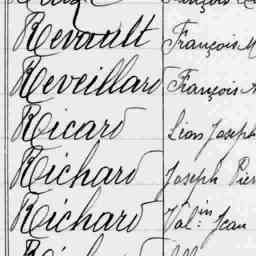 Revault François M
Reveillard François A
Ricard Léon Joseph
Richard Joseph Pier
Richard Val:in Jean